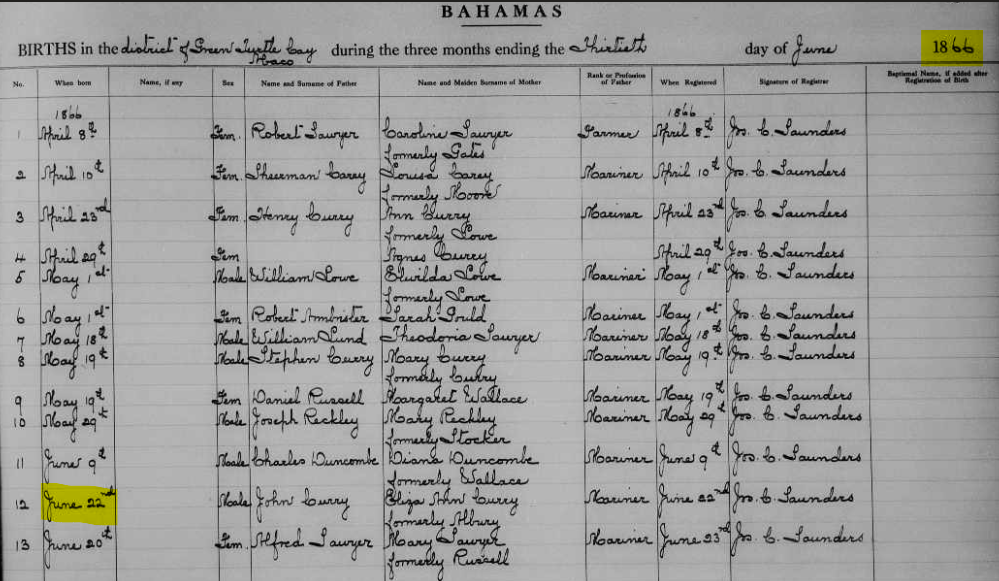 BAHAMAS
BIRTHS in the district of Green Turtle Cay Abaco during the three months ending the Thirtieth day of June 1866
No. When born Name, if any Sex Name and Surname of Father Name and Maiden Surname of Mother Rank or Profession of Father When Registered Signature of Registrar Baptismal Name, if added after Registration of Birth
1866 1866
1 April 8th Fem. Robert Sawyer Caroline Sawyer Farmer April 8th Jos. C. Saunders
formerly Gates
2 April 10th Fem. Sheerman Carey Louisa Carey Mariner April 10th Jos. C. Saunders
formerly Moore
3 April 23rd Fem. Henry Curry Ann Curry Mariner April 23rd Jos. C. Saunders
formerly Lowe
4 April 29th Fem Agnes Curry April 29th Jos. C. Saunders
5 May 1st Male William Lowe Elwilda Lowe Mariner May 1st Jos. C. Saunders
formerly Lowe
6 May 1st Fem Robert Ambrister Sarah Gould Mariner May 1st Jos. C. Saunders
7 May 18th Male William Lund Theodoria Sawyer Mariner May 18th Jos. C. Saunders
8 May 19th Male Stephen Curry Mary Curry Mariner May 19th Jos. C. Saunders
formerly Curry
9 May 19th Fem Daniel Russell Margaret Wallace Mariner May 19th Jos. C. Saunders
10 May 29th Male Joseph Reckley Mary Reckley Mariner May 29th Jos. C. Saunders
formerly Stocker
11 June 9th Male Charles Duncombe Diana Duncombe Mariner June 9th Jos. C. Saunders
formerly Wallace
12 June 22nd Male John Curry Eliza Ann Curry Mariner June 22nd Jos. C. Saunders
formerly Albury
13 June 20th Fem. Alfred Sawyer Mary Sawyer Mariner June 23rd Jos. C. Saunders
formerly Russell